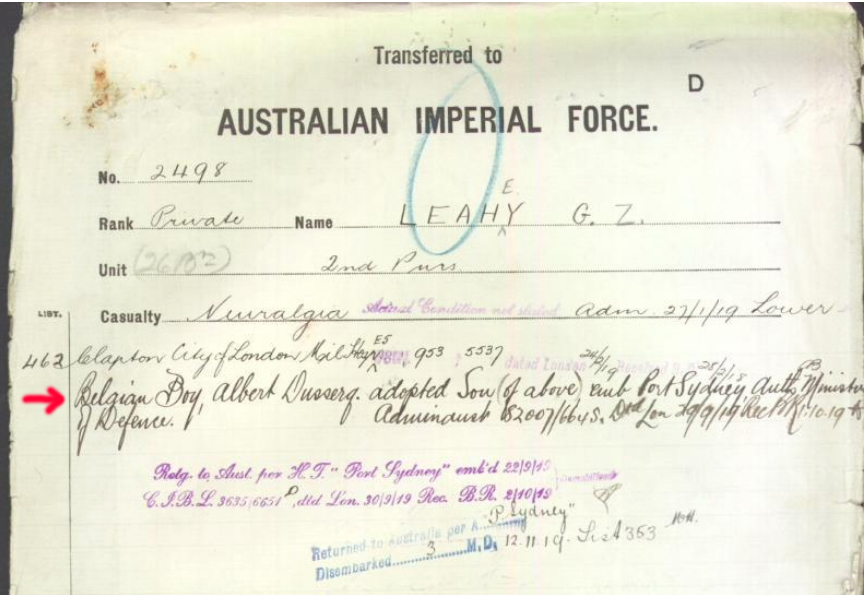 Transferred to
D
AUSTRALIAN IMPERIAL FORCE.
No. 2498
E
Rank Private Name LEAHY G. Z.
Unit 2nd Purs
LIST. Casualty Neuralgia Actual Condition not stated adm. 27/1/19 Lower
462 Clapton City of London Mil. 953 5537 dated London
Belgian Boy, Albert Dusserq. adopted Son (of above) emb Port Sydney, auth, Minister
of Defence. Adminaust
Retg. to Aust. per H.T. "Port Sydney" emb'd 22/9/19
C.I.B.L. 3635/6651 dtd Lon. 30/9/19 Rec. B.R. 2/10/19
"P. Sydney"
Returned to Australia per
Disembarked 3 M.D. 12.11.19. List 353